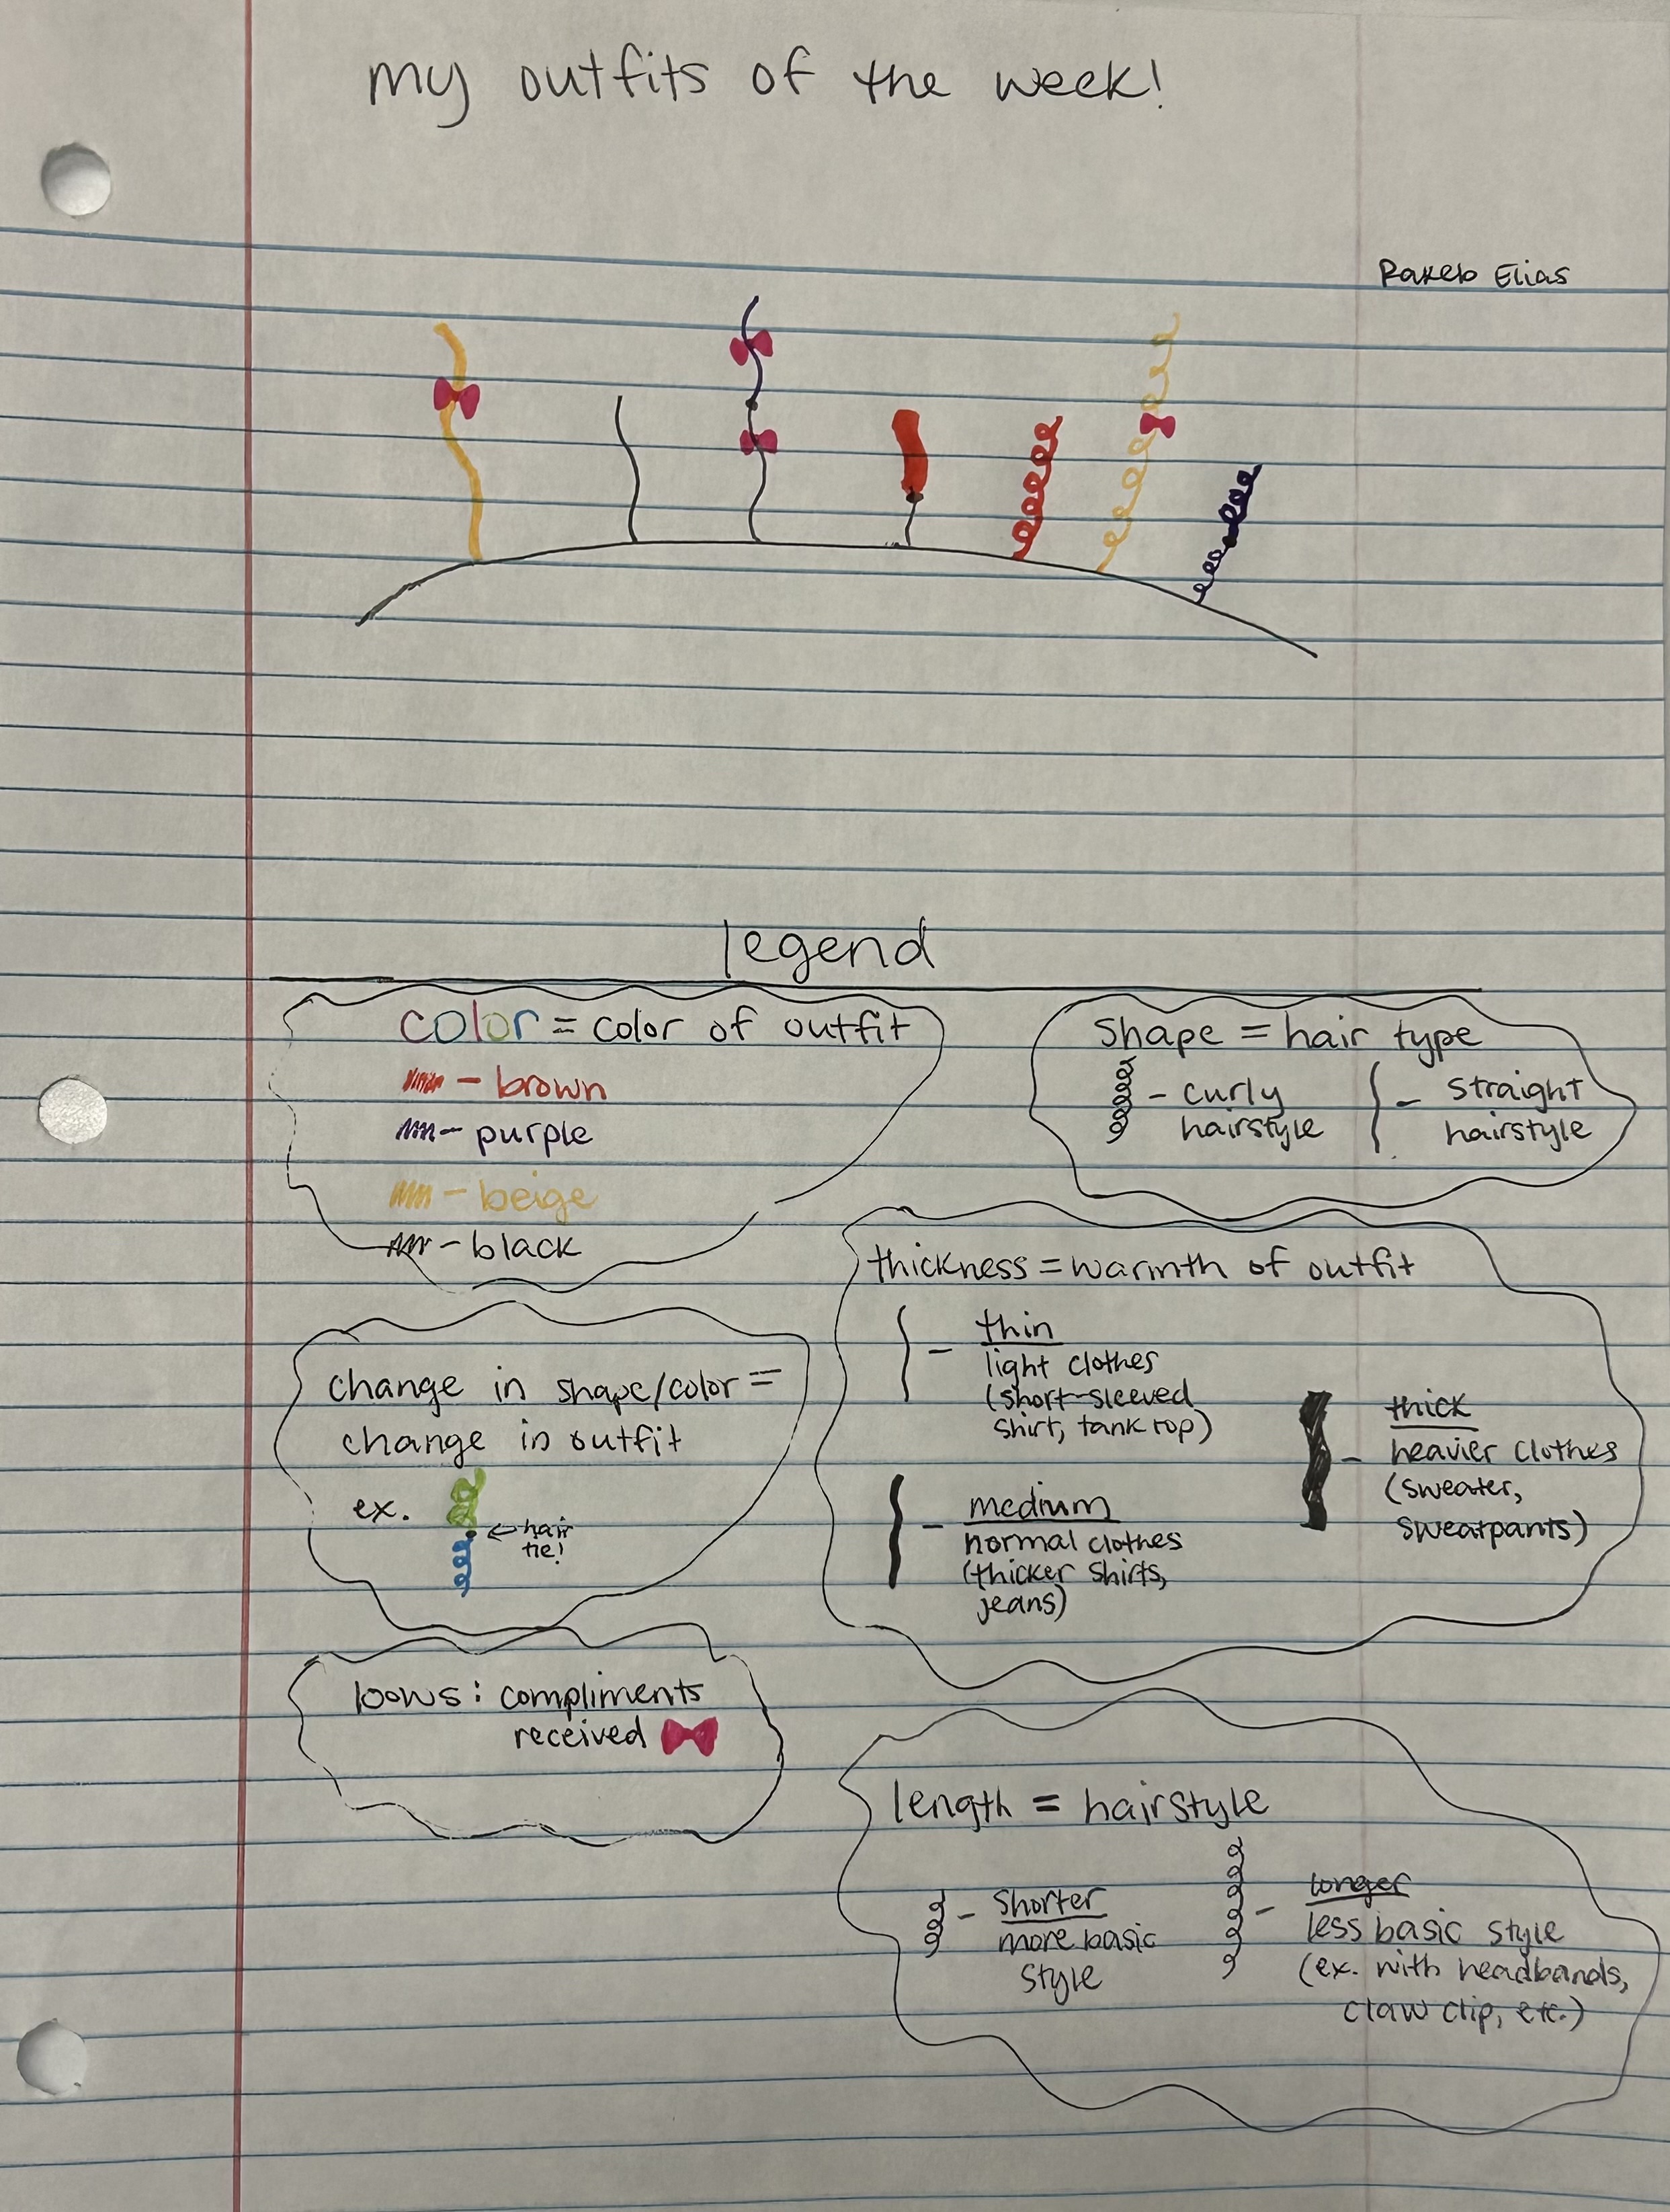 my outfits of the week!
Elias
legend
color = color of outfit
- brown
- purple
- beige
- black
Shape = hair type
- curly hairstyle
- straight hairstyle
thickness = warmth of outfit
- thin
light clothes
(short-sleeved
shirt, tank top)
- medium
normal clothes
(thicker shirts,
jeans)
- thick
heavier clothes
(sweater,
sweatpants)
change in shape/color =
change in outfit
ex.
← hair
tie!
bows: compliments
received
length = hairstyle
- shorter
more basic
style
- longer
less basic style
(ex. with headbands,
claw clip, etc.)